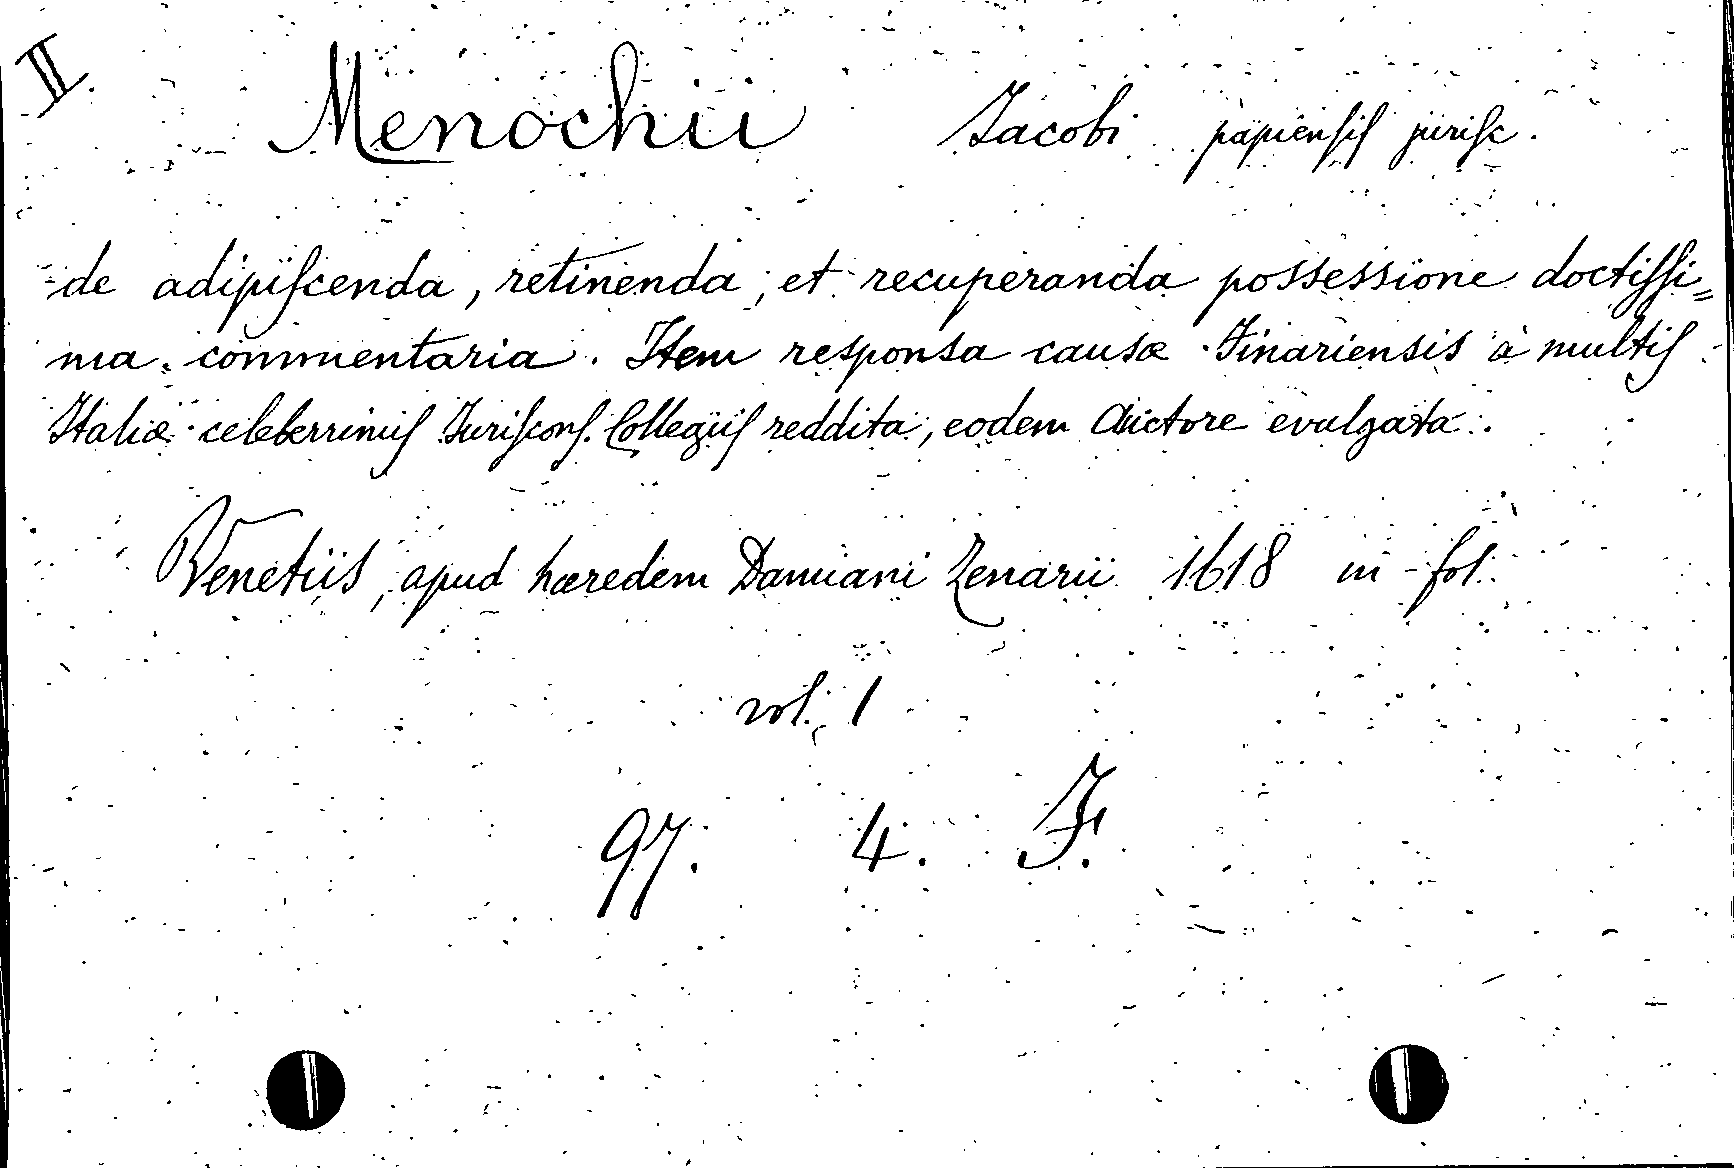 II.
Menochii Jacobi papiensis jurisc.
de adipiscenda, retinenda, et recuperanda possessione doctissi=
ma commentaria. Item responsa causæ Finariensis à multis
Italiæ celeberrimis Jurisconf. Collegiis reddita, eodem Auctore evulgata.
Venetiis, apud hæredem Damiani Zenarii 1618 in-fol.
vol. 1
97. 4. F.